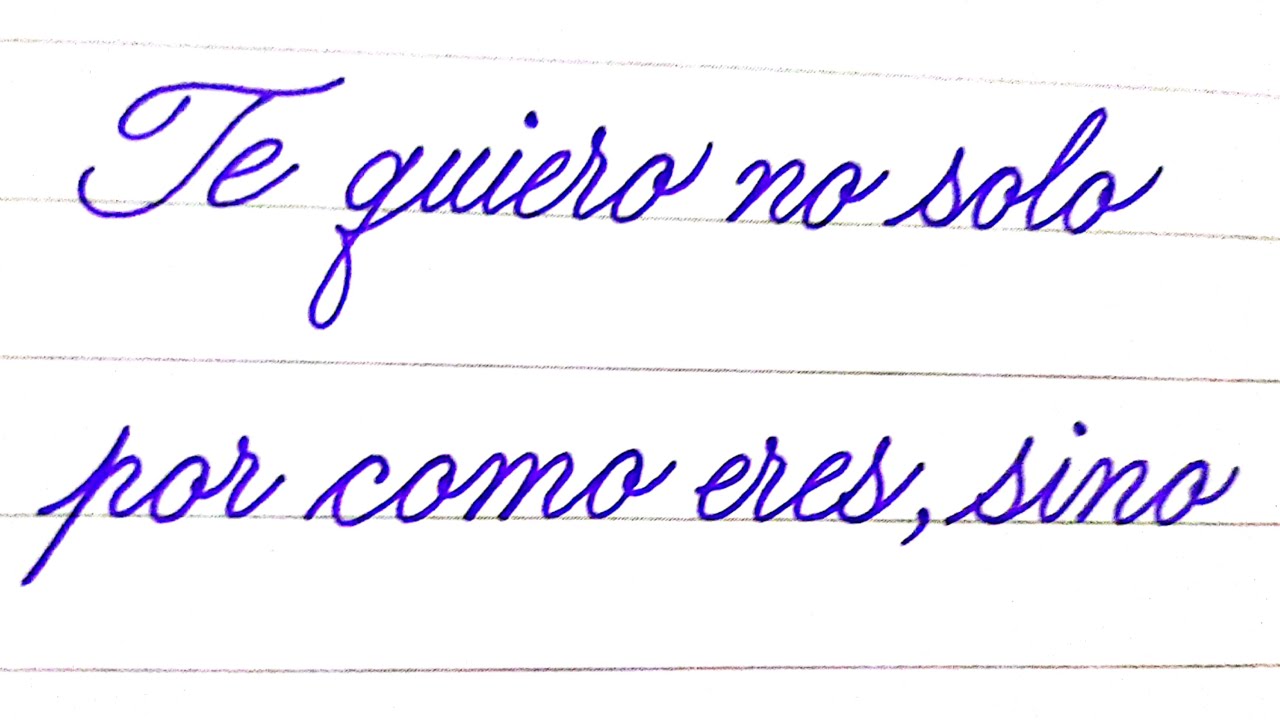 Te quiero no solo
por como eres, sino